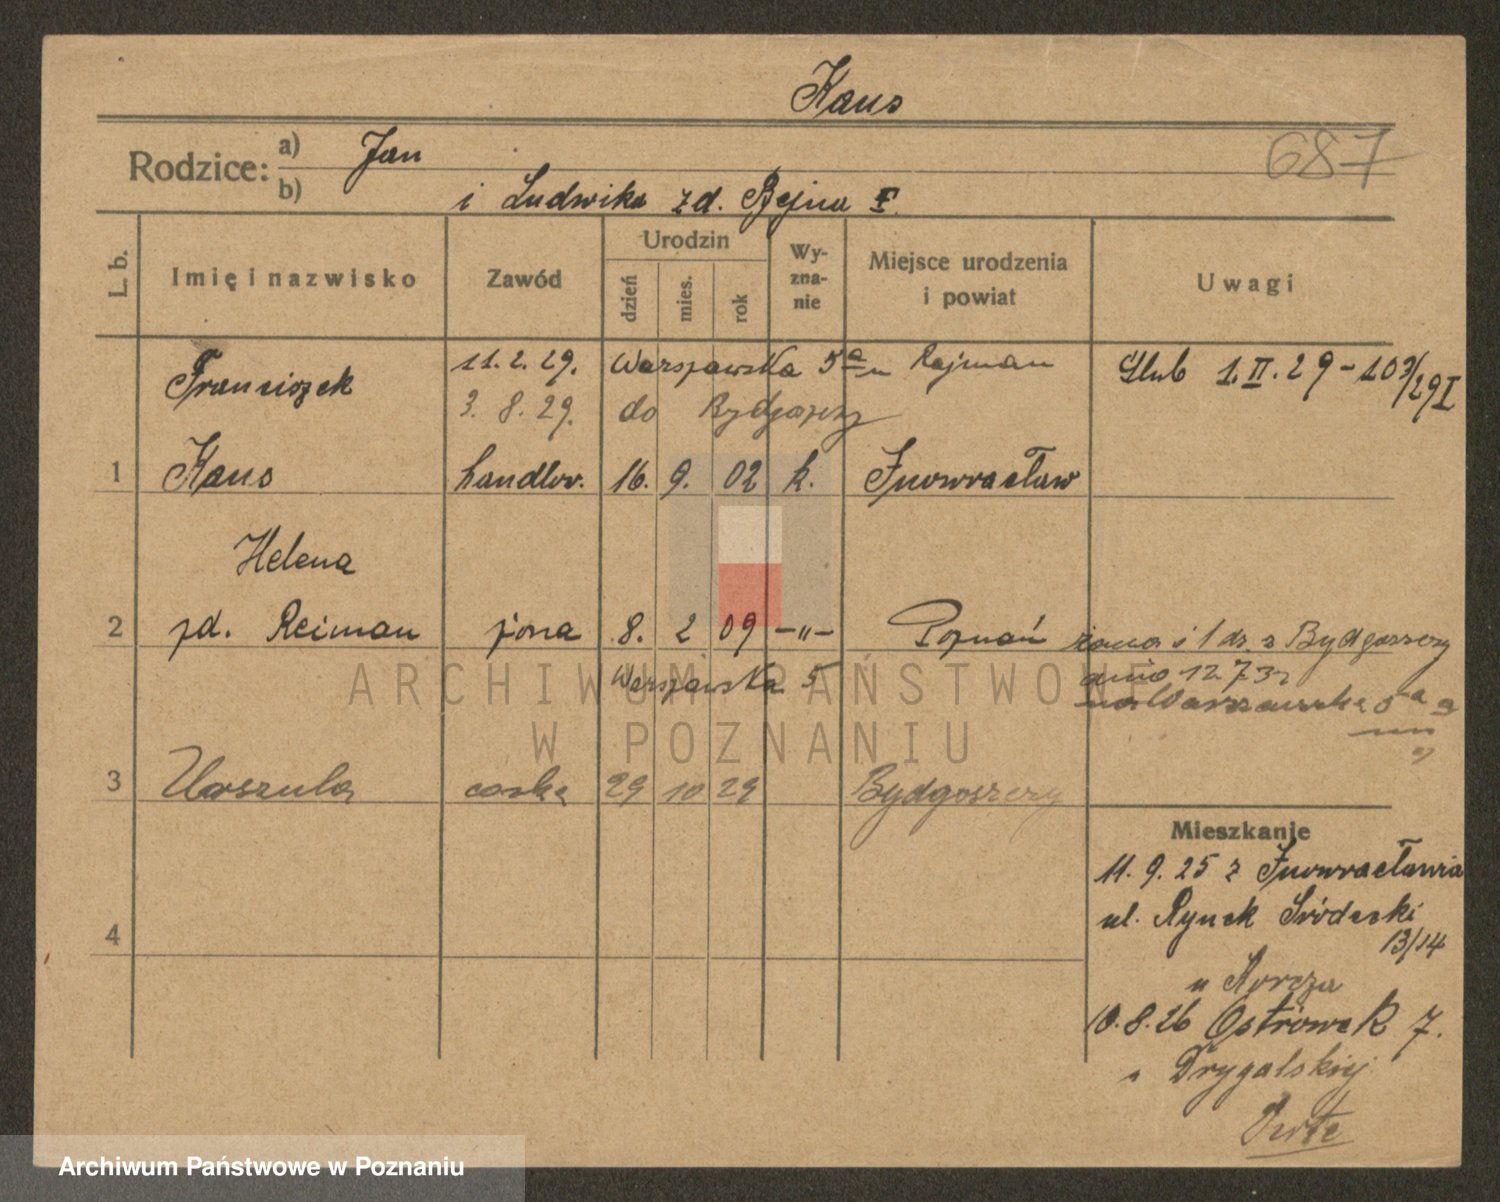 Kaus
687
Rodzice: a) Jan
b) i Ludwika zd. Bejna
L. b. Imię i nazwisko Zawód Urodzin Wy-zna-nie Miejsce urodzenia i powiat Uwagi
dzień mies. rok
Franciszek 11.2.29. Warszawska 5a u Rajman Ślub 1.II.29 - 103/29 I
3. 8. 29. do Bydgoszczy
1 Kaus handlow. 16. 9. 02 k. Inowrocław
Helena
2 zd. Reiman żona 8. 2 09 -"- Poznań żona i 1 dz. z Bydgoszczy
Warszawska 5 dnia 12 7 32
na Warszawska 5a
3 Urszula córka 29 10 29 Bydgoszczy
Mieszkanie
11. 9. 25 z Inowrocławia
4 ul. Rynek Śródecki
13/14
u
10.8.26 Ostrówek 7.
Drygalskiej
Verte
ARCHIWUM PAŃSTWOWE
W POZNANIU
Archiwum Państwowe w Poznaniu